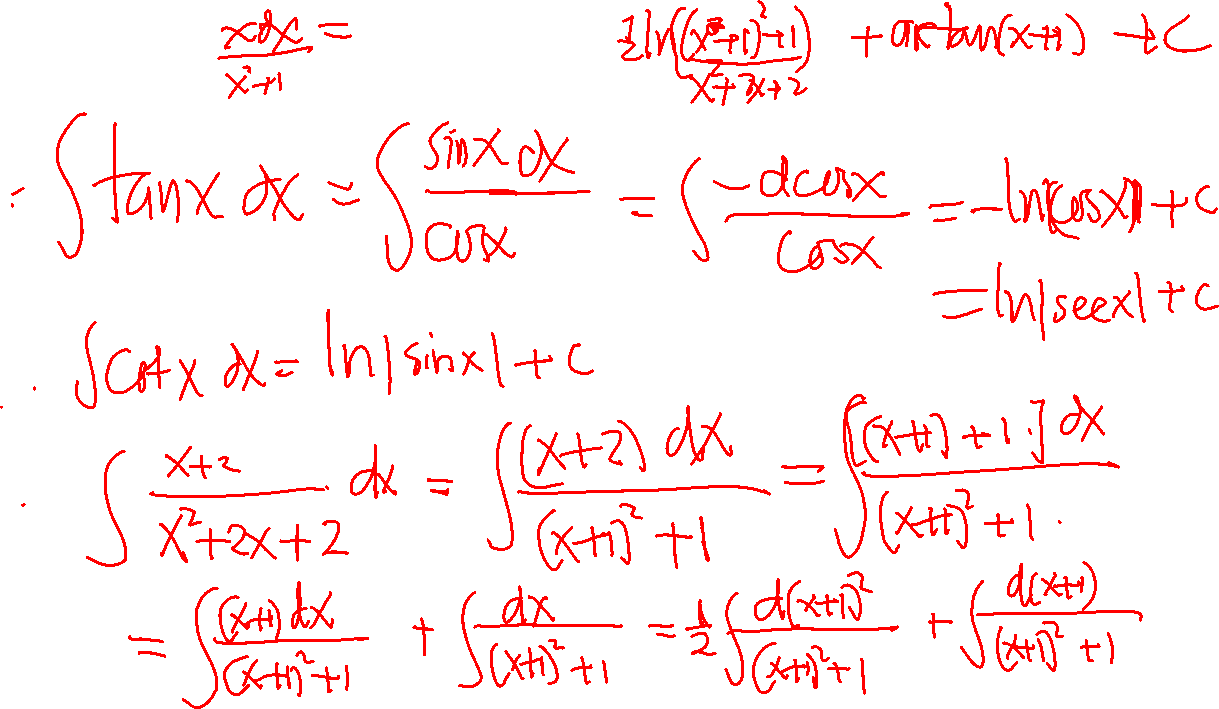 xdx/(x²+1) = ½ln((x+1)²+1) + arctan(x+1) + C
x²+2x+2
= ∫tanx dx = ∫ sinx dx/cosx = ∫ -dcosx/cosx = -ln|cosx| + C
= ln|secx| + C
∫cotx dx = ln|sinx| + C
∫ (x+2)/(x²+2x+2) dx = ∫ (x+2) dx/((x+1)²+1) = ∫ [(x+1)+1] dx/((x+1)²+1)
= ∫ (x+1) dx/((x+1)²+1) + ∫ dx/((x+1)²+1) = ½ ∫ d(x+1)²/((x+1)²+1) + ∫ d(x+1)/((x+1)²+1)